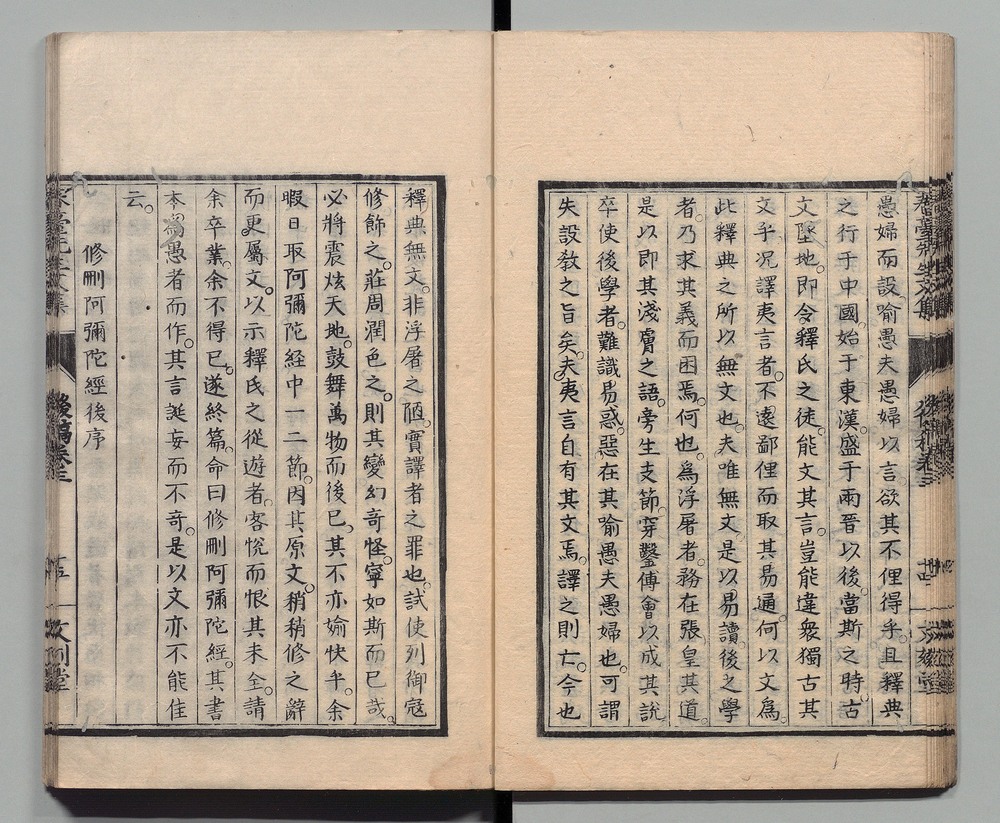 愚婦而設喻愚夫愚婦以言欲其不俚得乎。且釋典
之行于中國。始于東漢。盛于兩晉以後。當斯之時。古
文墜地。即令釋氏之徒。能文其言。豈能違衆獨古其
文乎。況譯夷言者。不遠鄙俚而取其易通。何以文爲。
此釋典之所以無文也。夫唯無文。是以易讀。後之學
者。乃求其義而困焉。何也。爲浮屠者。務在張皇其道。
是以即其淺膚之語。旁生支節。穿鑿傅會以成其說
卒使後學者。難識易惑。惡在其喻愚夫愚婦也。可謂
失設敎之旨矣。夫夷言自有其文焉。譯之則亡。今也
釋典無文。非浮屠之陋。實譯者之罪也。試使列御寇
修飾之。莊周潤色之。則其變幻奇怪。寧如斯而已哉。
必將震炫天地。鼓舞萬物而後已。其不亦婾快乎。余
暇日取阿彌陀經中一二節。因其原文。稍稍修之辭
而更屬文。以示釋氏之從遊者。客悅而恨其未全。請
余卒業。余不得已。遂終篇。命曰修刪阿彌陀經。其書
本爲愚者而作。其言誕妄而不奇。是以文亦不能佳
云。
修刪阿彌陀經後序
後稿卷三